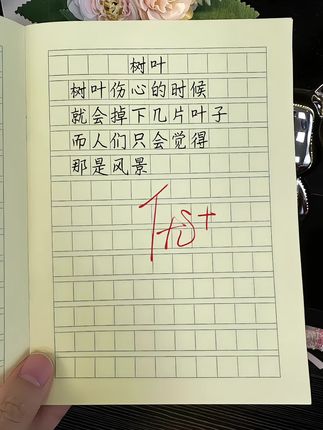 树叶
树叶伤心的时候
就会掉下几片叶子
而人们只会觉得
那是风景